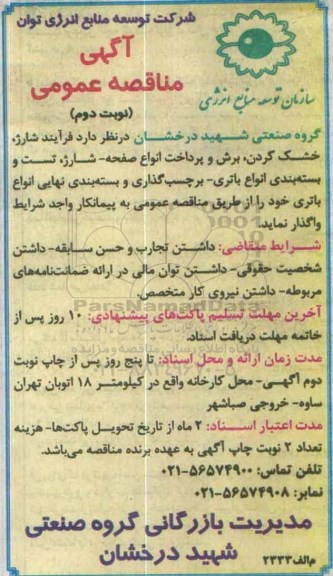 شرکت توسعه منابع انرژی توان
سازمان توسعه منابع انرژی
آگهی
مناقصه عمومی
(نوبت دوم)
گروه صنعتی شهید درخشان درنظر دارد فرآیند شارژ،
خشک کردن، برش و پرداخت انواع صفحه- شارژ، تست و
بسته‌بندی انواع باتری- برچسب‌گذاری و بسته‌بندی نهایی انواع
باتری خود را از طریق مناقصه عمومی به پیمانکار واجد شرایط
واگذار نماید.
شرایط متقاضی: داشتن تجارب و حسن سابقه- داشتن
شخصیت حقوقی- داشتن توان مالی در ارائه ضمانت‌نامه‌های
مربوطه- داشتن نیروی کار متخصص.
آخرین مهلت تسلیم پاکت‌های پیشنهادی: ۱۰ روز پس از
خاتمه مهلت دریافت اسناد.
مدت زمان ارائه و محل اسناد: تا پنج روز پس از چاپ نوبت
دوم آگهی- محل کارخانه واقع در کیلومتر ۱۸ اتوبان تهران
ساوه- خروجی صباشهر
مدت اعتبار اسناد: ۲ ماه از تاریخ تحویل پاکت‌ها- هزینه
تعداد ۲ نوبت چاپ آگهی به عهده برنده مناقصه می‌باشد.
تلفن تماس: ۵۶۵۷۴۹۰۰-۰۲۱
نمابر: ۵۶۵۷۴۹۰۸-۰۲۱
مدیریت بازرگانی گروه صنعتی
شهید درخشان
م‌الف۲۳۳۳